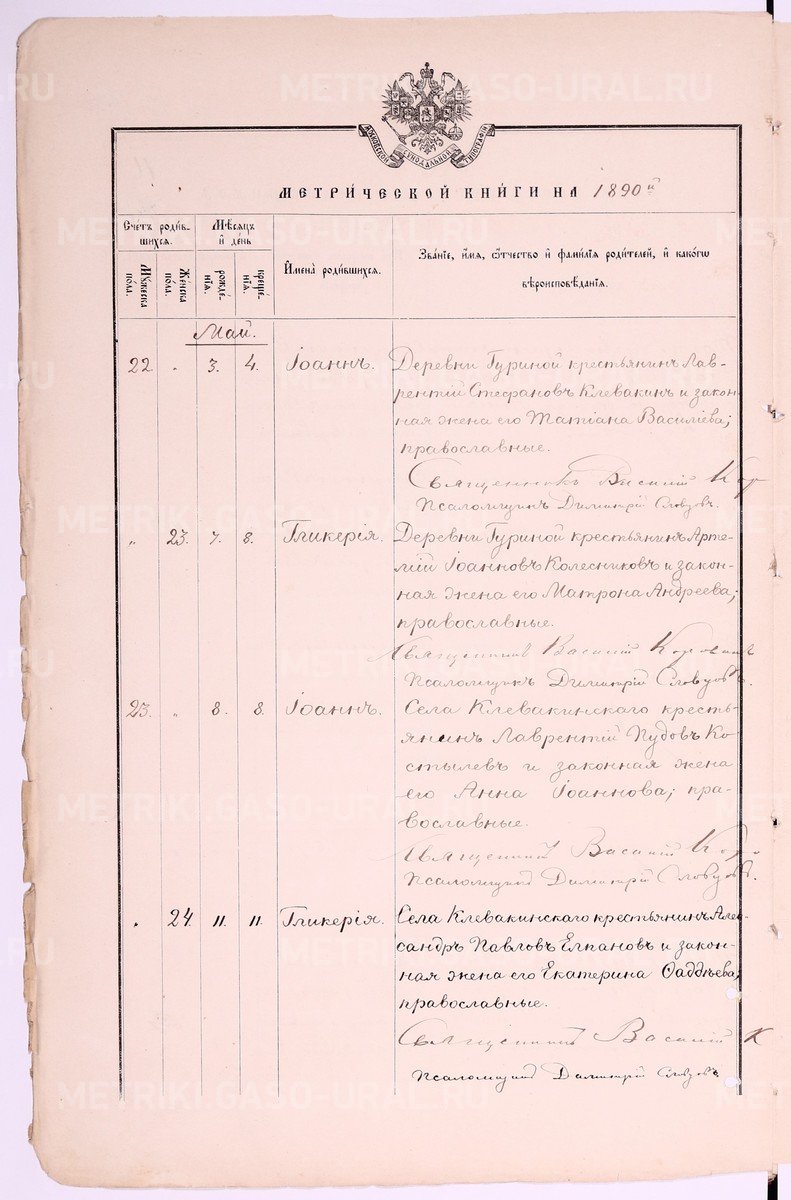 МОСКОВСКОЙ СѴНОДАЛЬНОЙ ТИПОГРАФІИ
МЕТРИ́ЧЕСКОЙ КНИ́ГИ НА 1890й
Сче́тъ роди́в-
шихся.
Мѣсяцъ
и҆ де́нь
И҆мена̀ роди́вшихся.
Зва́нїе, и҆́мя, ѻ҆́тчество и҆ фами́лїя роди́телей, и҆ како́гѡ
вѣроисповѣ́данїя.
Мꙋжеска
по́ла.
Женска
по́ла.
рожде́-
нїя.
креще́-
нїя.
Май.
22. „ 3. 4. Іоаннъ. Деревни Гуриной крестьянинъ Лав-
рентій Стефановъ Клевакинъ и закон-
ная жена его Татіана Василіева;
православные.
Священникъ Василій
Псаломщикъ Димитрій Словцовъ.
„ 23. 7. 8. Гликерія. Деревни Гуриной крестьянинъ Арте-
мій Іоанновъ Колесниковъ и закон-
ная жена его Матрона Андреева;
православные.
Священникъ Василій
Псаломщикъ Димитрій Словцовъ.
23. „ 8. 8. Іоаннъ. Села Клевакинскаго кресть-
янинъ Лаврентій Пудовъ Ко-
стылевъ и законная жена
его Анна Іоаннова; пра-
вославные.
Священникъ Василій
Псаломщикъ Димитрій Словцовъ.
„ 24. 11. 11. Гликерія. Села Клевакинскаго крестьянинъ Алек-
сандръ Павловъ Елпановъ и закон-
ная жена его Екатерина Ѳаддѣева;
православные.
Священникъ Василій К
Псаломщикъ Димитрій Словцовъ
METRIKI.GASO-URAL.RU